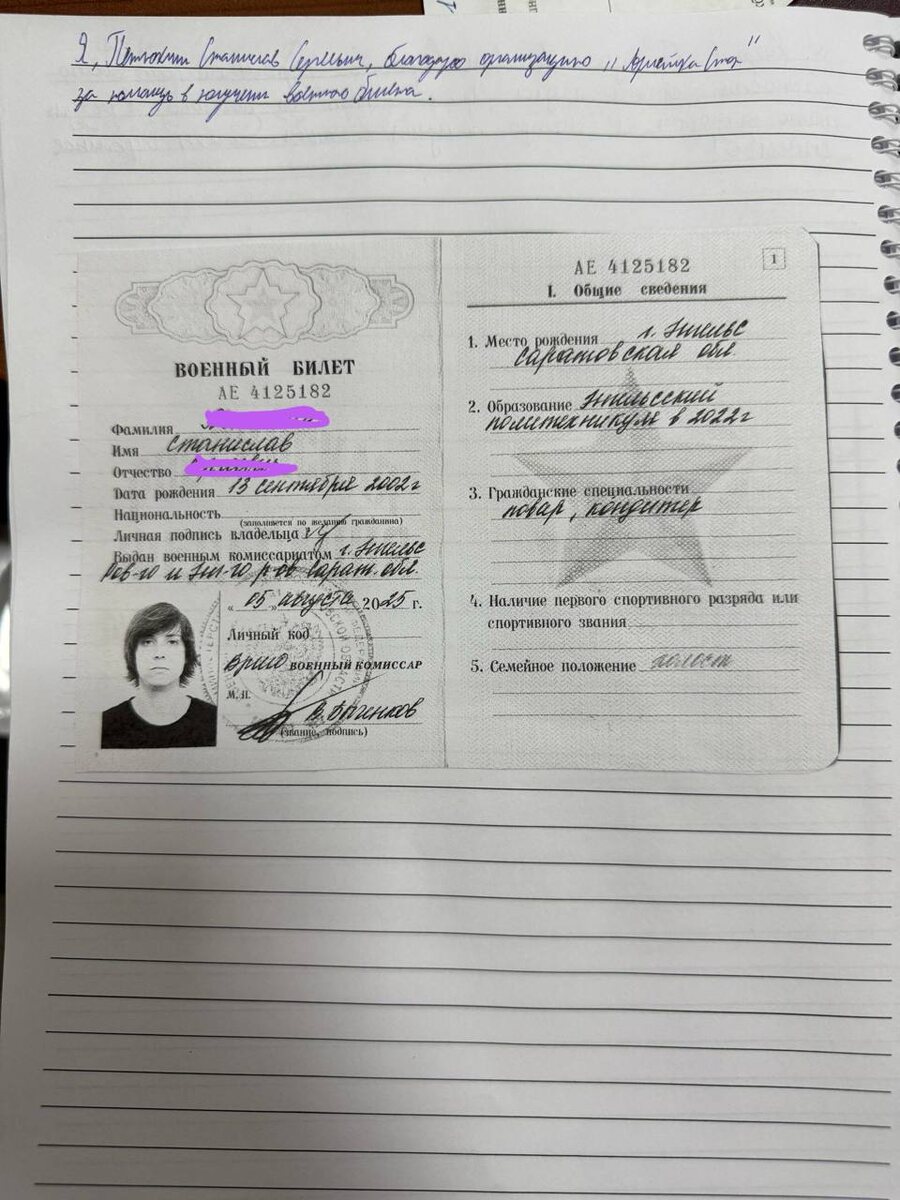 Я, Станислав Сергеевич, благодарю организацию "Армейка Стоп"
за помощь в получении военного билета.
ВОЕННЫЙ БИЛЕТ
АЕ 4125182
Фамилия
Имя Станислав
Отчество
Дата рождения 13 сентября 2002 г
Национальность
(заполняется по желанию гражданина)
Личная подпись владельца
Выдан военным комиссариатом г. Энгельс
и р-ов Сарат. обл
"05" августа 2025 г.
Личный код
Врио ВОЕННЫЙ КОМИССАР
М. П.
В.
(звание, подпись)
АЕ 4125182
1
I. Общие сведения
1. Место рождения г. Энгельс
Саратовская обл
2. Образование Энгельсский
политехникум в 2022 г
3. Гражданские специальности
повар, кондитер
4. Наличие первого спортивного разряда или
спортивного звания
5. Семейное положение холост